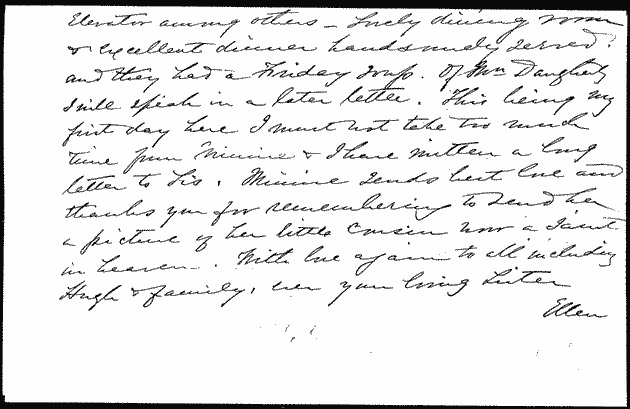 Elevator among others - Lovely dining room
& excellent dinner handsomely served.
and they had a Friday soup. Of Mrs Daugherty
I will speak in a later letter. This being my
first day here I must not take too much
time from Minnie & I have written a long
letter to Sis. Minnie sends best love and
thanks you for remembering to send her
a picture of her little Cousin now a Saint
in heaven. With love again to all including
Hugh & family, ever your loving Sister
Ellen